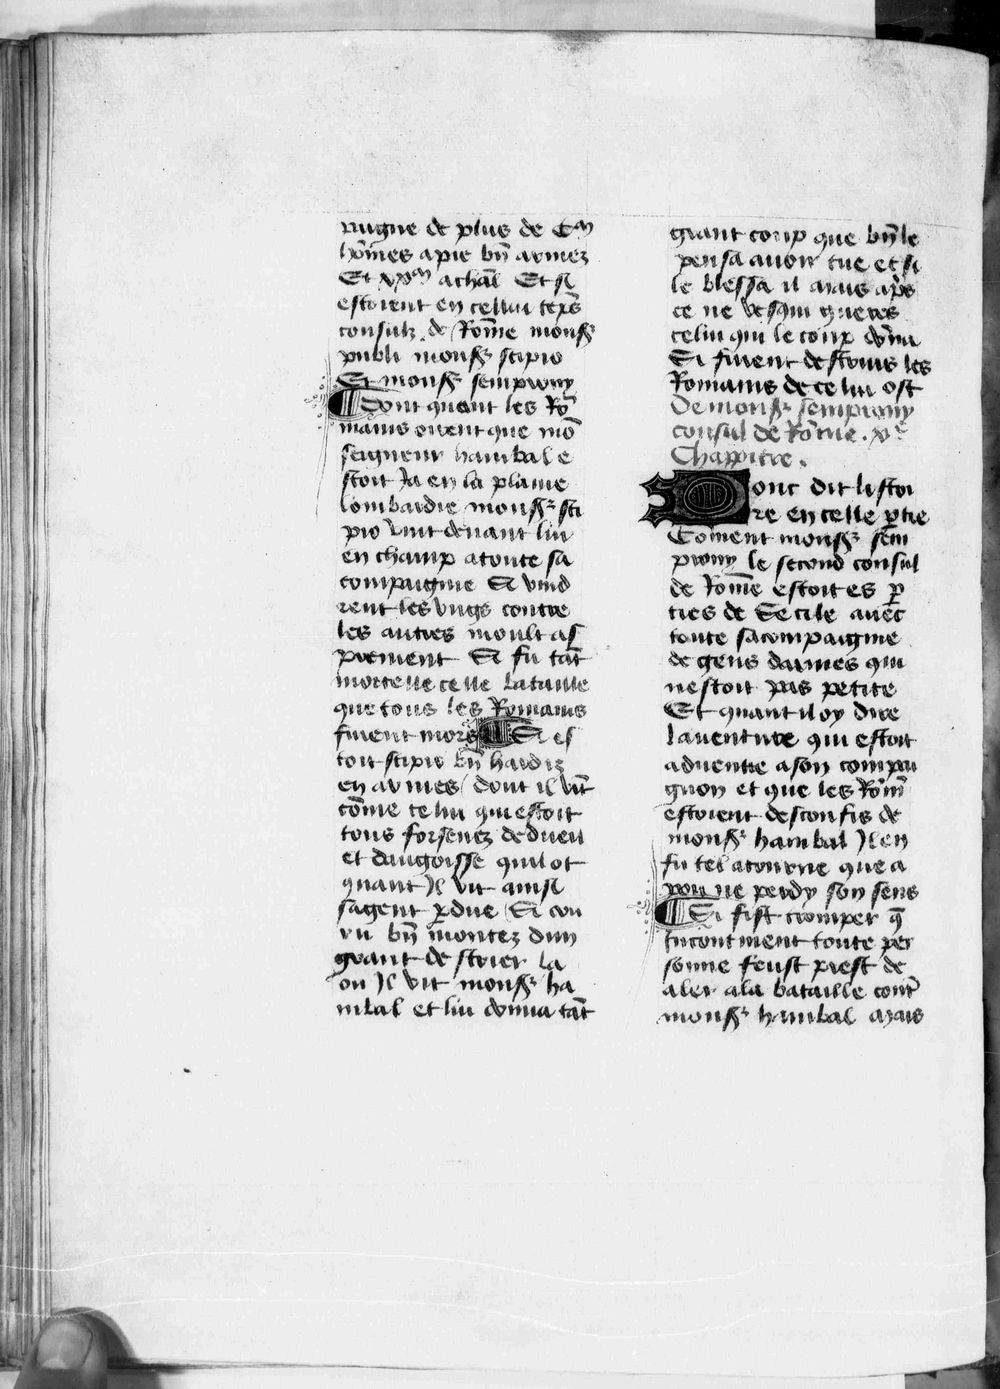 paigne de plus de Cm
hõmes a pie bñ armez
Et xxm a chãl Et si
estoient en cellui tẽps
consulz de Rõme monsr
publi monsr scipio
Et monsr semprony
Dont quant les Rõ
mains oirent que mõ
seigneur hanibal e
stoit Ia en la plaine
lombardie monsr sci
pio vint devant lui
en champ a toute sa
compaignie Si vind
rent les vngs contre
les autres moult as
prement Si fu tãt
mortelle celle bataille
que tous les Romains
furent mors Si es
toit scipio bñ hardiz
en armes dont il vit
cõme celui qui estoit
tous forsenez de dueil
et dangoisse quil ot
quant Il vit ainsi
sa gent pdue Si cou
ru bñ montez dun
grant destrier la
ou Il vit monsr ha
nibal et lui donna tãt
grant coup que bñ le
pensa auoir tue et si
le blessa il mais aps
ce ne vesqui gueres
celui qui le coup dõna
Si furent destruis les
Romains de celui ost
De monsr semprony
consul de Rõme . xve
Chappitre .
Donc dit listoi
re en celle ptie
Coment monsr sem
prony le second consul
de Rõme estoit es p
ties de Secile auec
toute sa compaignie
de gens darmes qui
nestoit pas petite
Et quant il oy dire
lauenture qui estoit
aduenue a son compai
gnon et que les Rõm
estoient desconfis de
monsr hanibal Il en
fu tel atourne que a
pou ne perdy son sens
Si fist tromper q̃
Incontinent toute per
sonne feust prest de
aler a la bataille contr
monsr hanibal mais